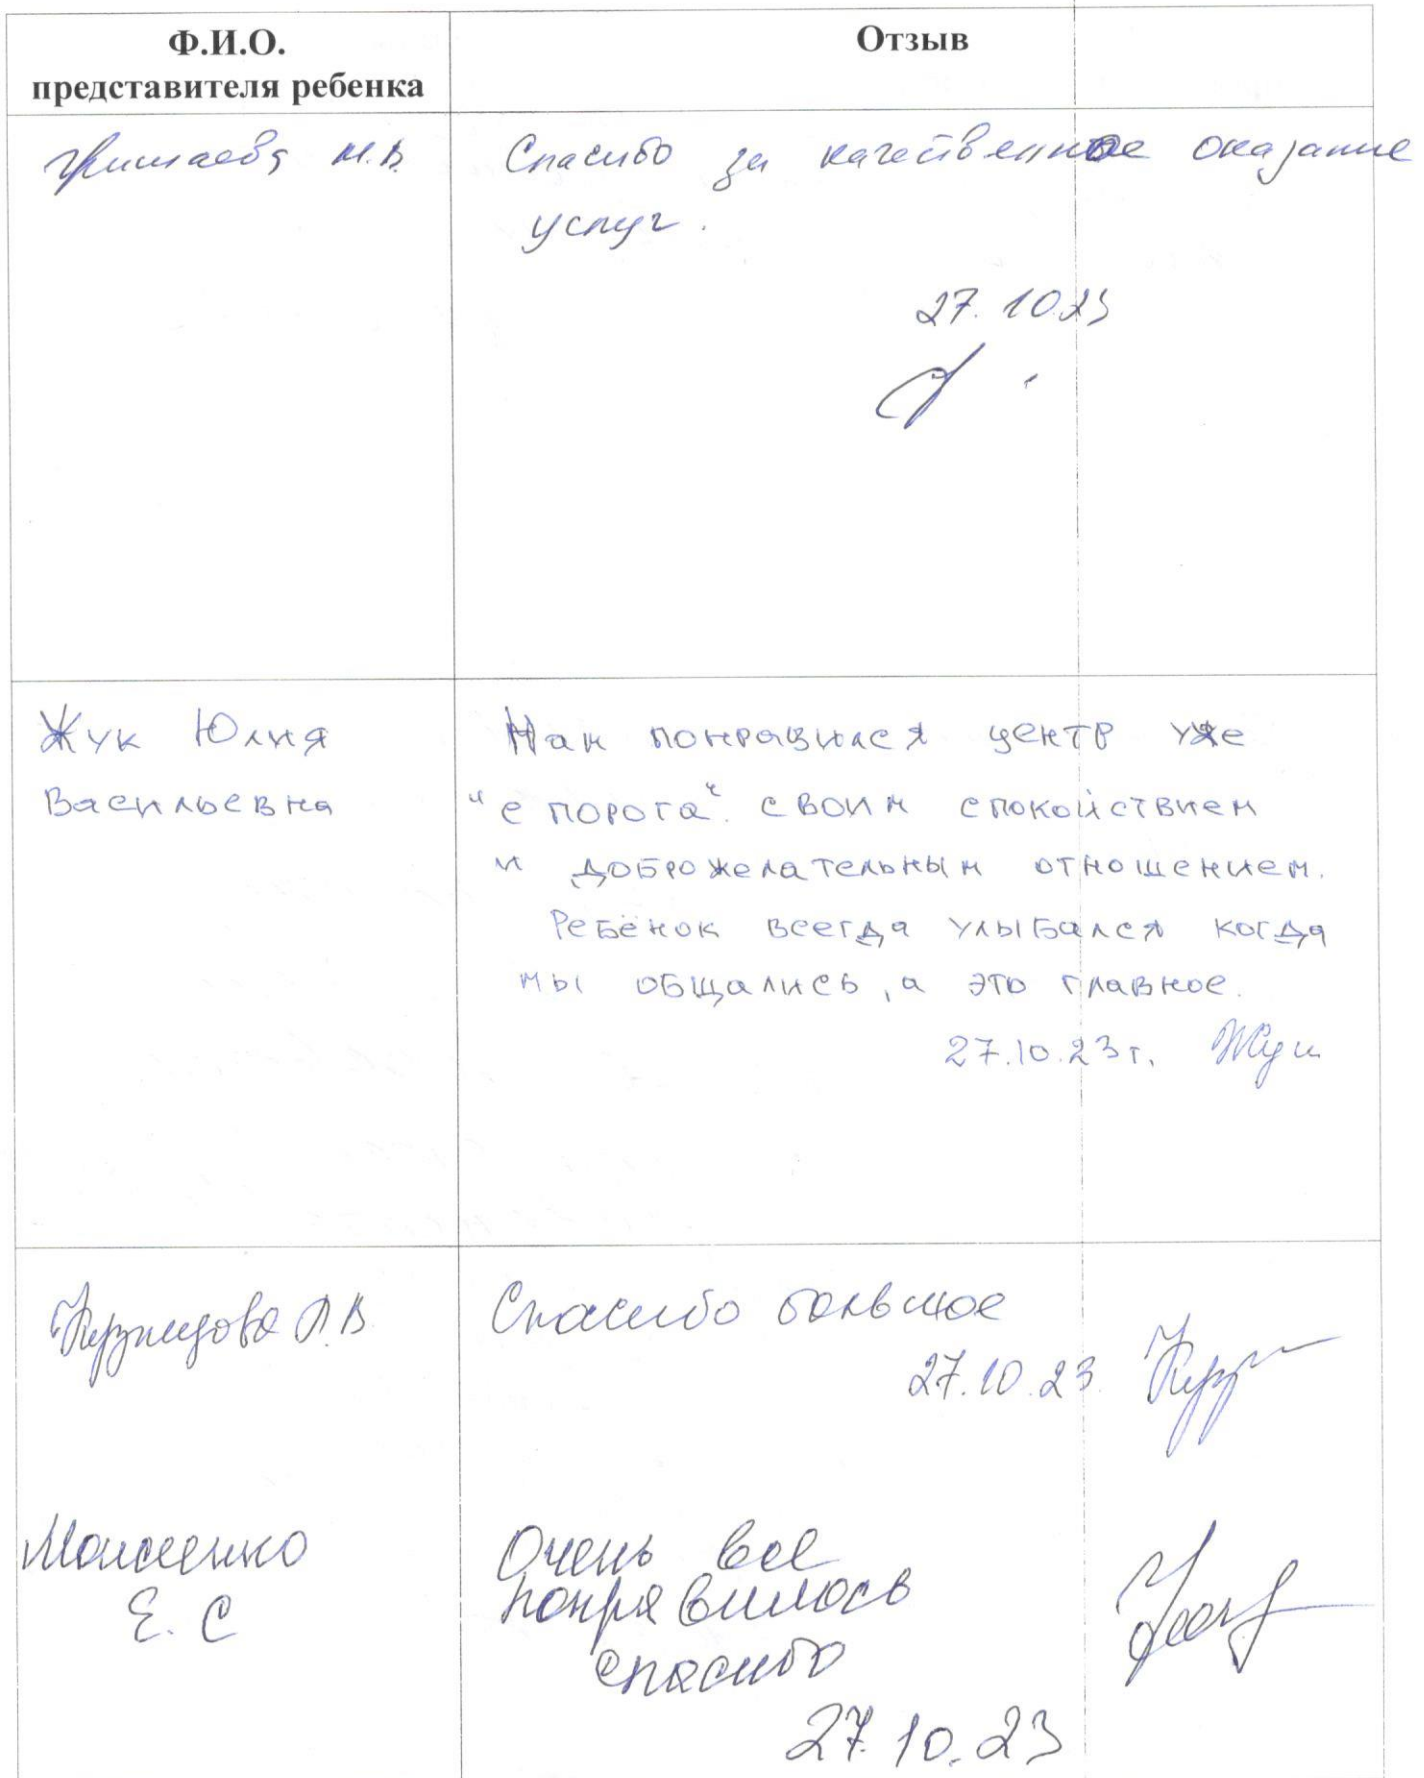 Ф.И.О.
представителя ребенка
Отзыв
Гришаева М.В.
Спасибо за качественное оказание
услуг.
27.10.23
Жук Юлия
Васильевна
Нам понравился центр уже
"с порога" своим спокойствием
и доброжелательным отношением.
Ребёнок всегда улыбался когда
мы общались, а это главное.
27.10.23 г. Жук
Спасибо большое
27.10.23.
Е. С
Очень все
понравилось
спасибо
27.10.23